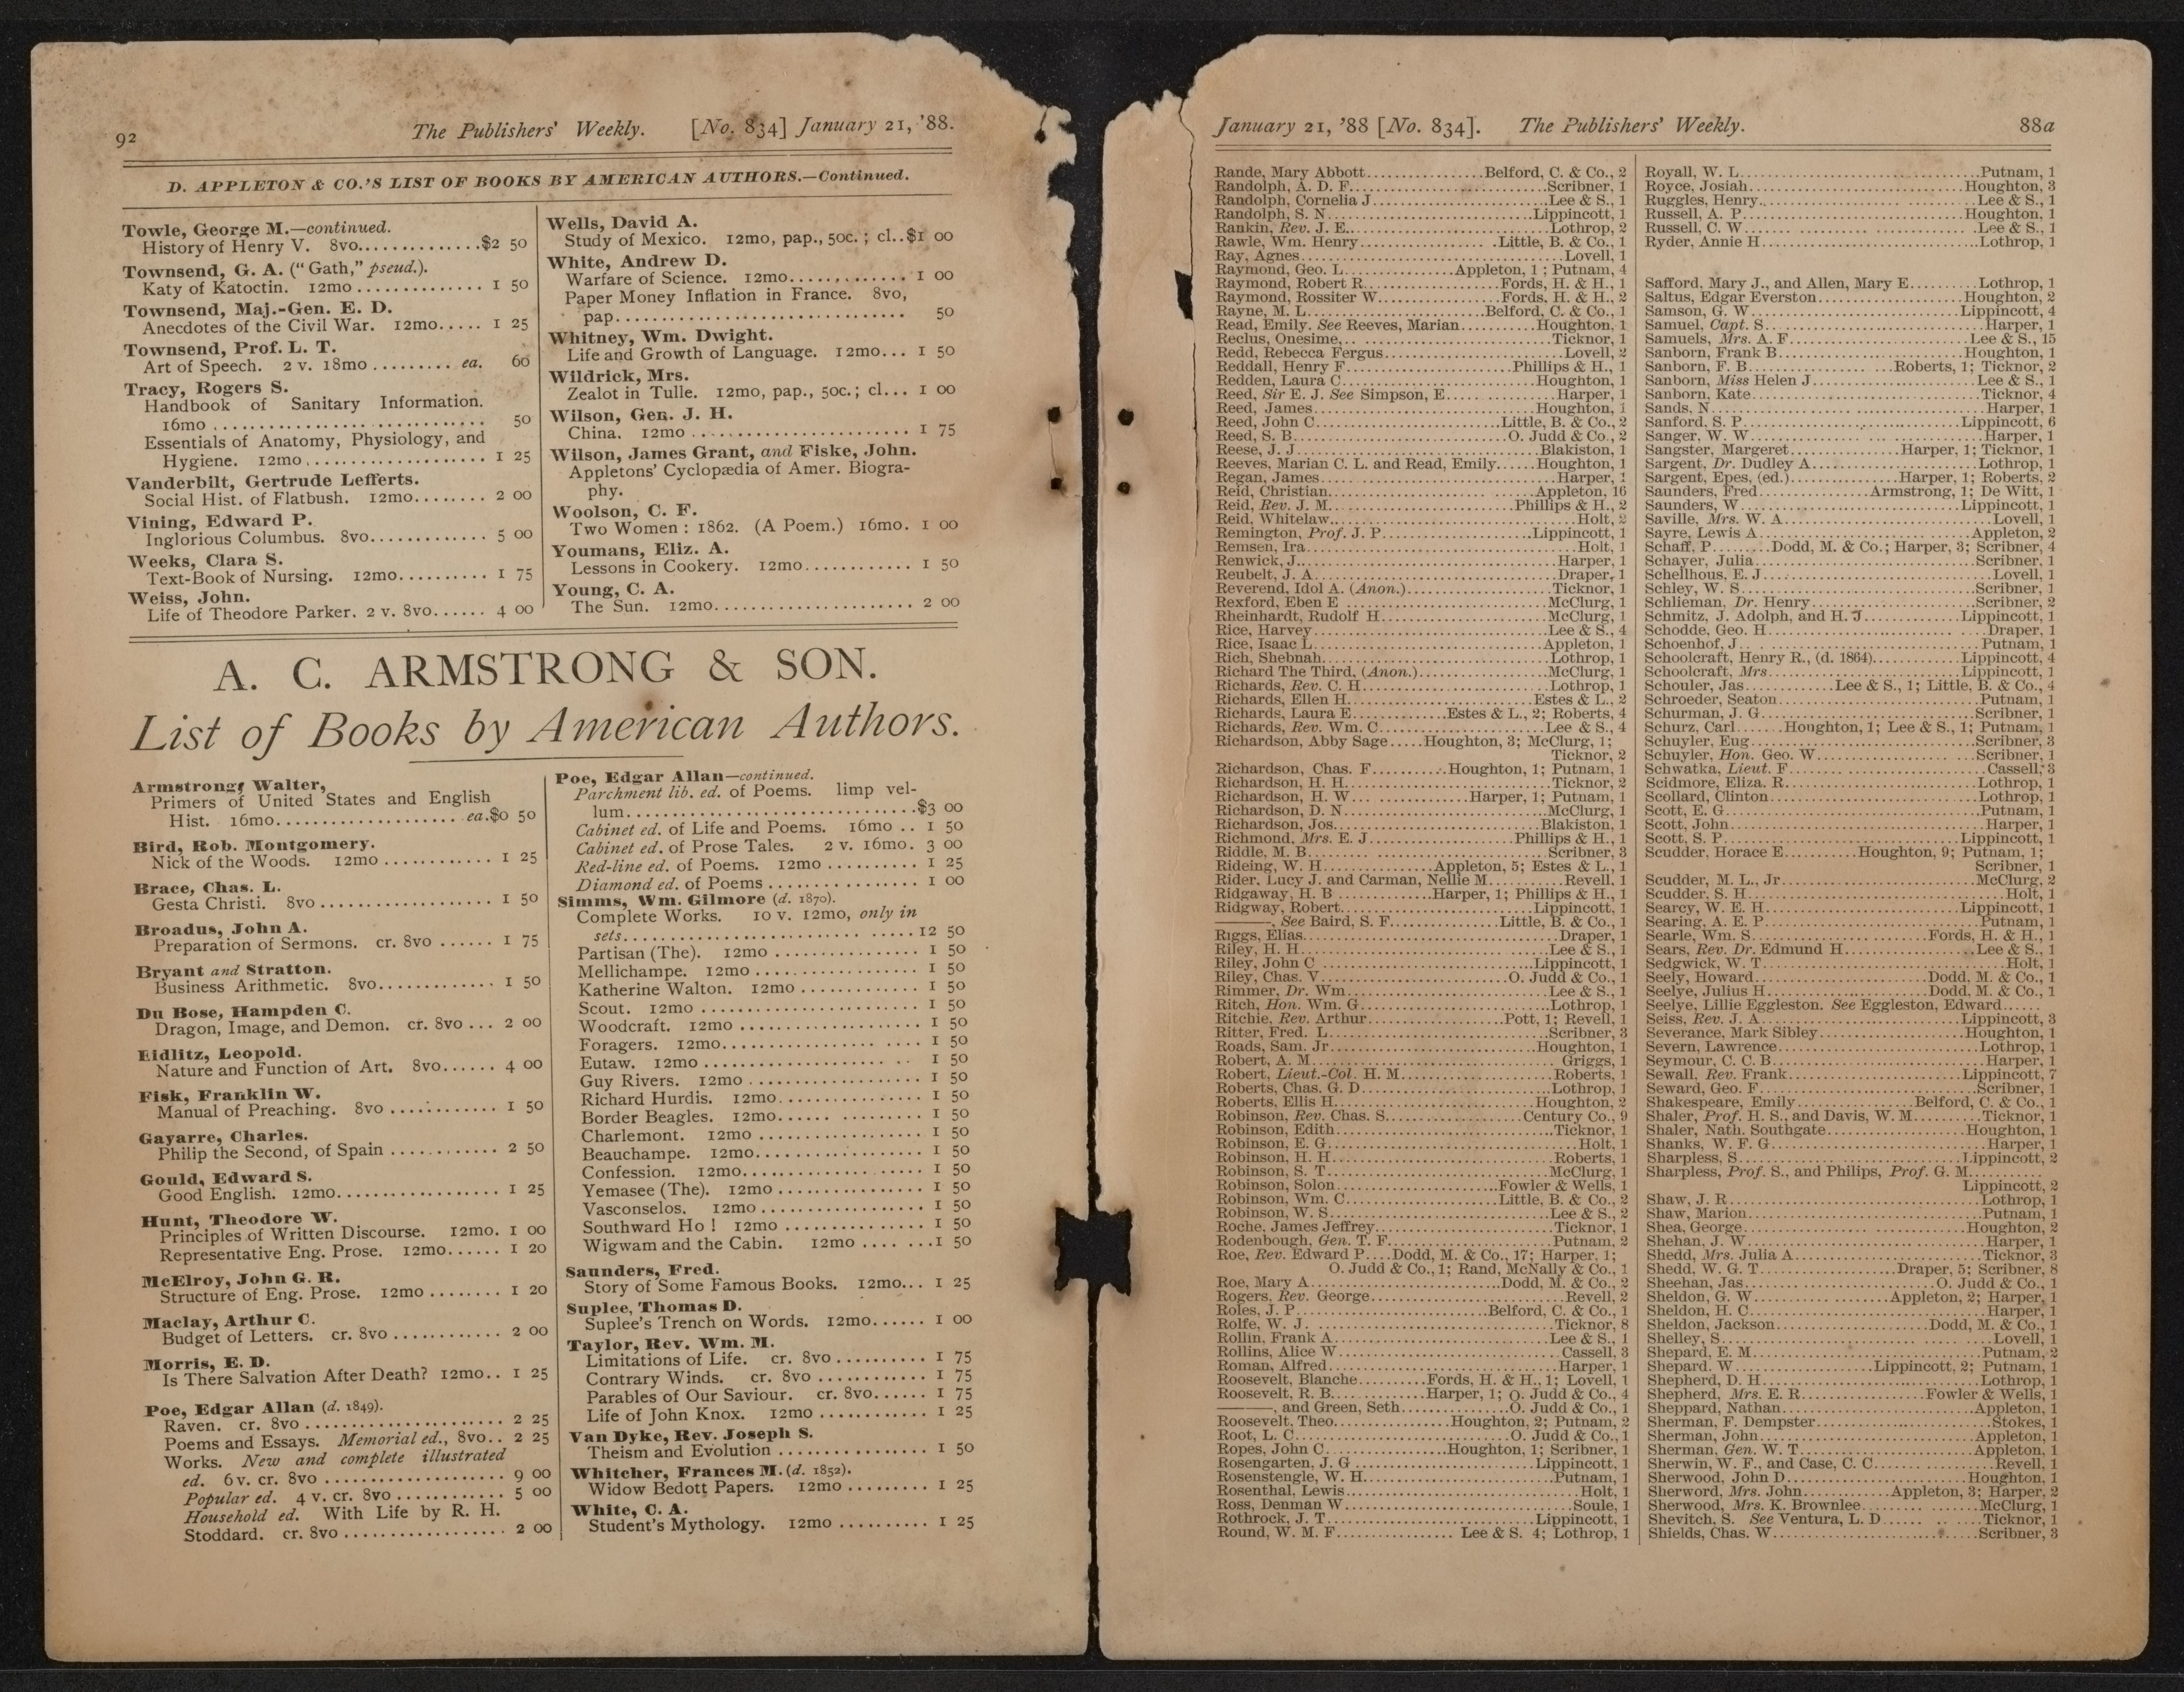 92
The Publishers' Weekly.
[No. 834] January 21, '88.
D. APPLETON & CO.'S LIST OF BOOKS BY AMERICAN AUTHORS.—Continued.
Towle, George M.—continued.
History of Henry V. 8vo.............$2 50
Townsend, G. A. ("Gath," pseud.).
Katy of Katoctin. 12mo.............. 1 50
Townsend, Maj.-Gen. E. D.
Anecdotes of the Civil War. 12mo..... 1 25
Townsend, Prof. L. T.
Art of Speech. 2 v. 18mo ......... ea. 60
Tracy, Rogers S.
Handbook of Sanitary Information.
16mo .............................. 50
Essentials of Anatomy, Physiology, and
Hygiene. 12mo.................... 1 25
Vanderbilt, Gertrude Lefferts.
Social Hist. of Flatbush. 12mo........ 2 00
Vining, Edward P.
Inglorious Columbus. 8vo............. 5 00
Weeks, Clara S.
Text-Book of Nursing. 12mo.......... 1 75
Weiss, John.
Life of Theodore Parker. 2 v. 8vo...... 4 00
Wells, David A.
Study of Mexico. 12mo, pap., 50c.; cl..$1 00
White, Andrew D.
Warfare of Science. 12mo............. 1 00
Paper Money Inflation in France. 8vo,
pap................................ 50
Whitney, Wm. Dwight.
Life and Growth of Language. 12mo... 1 50
Wildrick, Mrs.
Zealot in Tulle. 12mo, pap., 50c.; cl... 1 00
Wilson, Gen. J. H.
China. 12mo ........................ 1 75
Wilson, James Grant, and Fiske, John.
Appletons' Cyclopædia of Amer. Biogra-
phy.
Woolson, C. F.
Two Women: 1862. (A Poem.) 16mo. 1 00
Youmans, Eliz. A.
Lessons in Cookery. 12mo............ 1 50
Young, C. A.
The Sun. 12mo...................... 2 00
A. C. ARMSTRONG & SON.
List of Books by American Authors.
Armstrong, Walter,
Primers of United States and English
Hist. 16mo.................... ea.$0 50
Bird, Rob. Montgomery.
Nick of the Woods. 12mo ............ 1 25
Brace, Chas. L.
Gesta Christi. 8vo ................... 1 50
Broadus, John A.
Preparation of Sermons. cr. 8vo ...... 1 75
Bryant and Stratton.
Business Arithmetic. 8vo............. 1 50
Du Bose, Hampden C.
Dragon, Image, and Demon. cr. 8vo ... 2 00
Eidlitz, Leopold.
Nature and Function of Art. 8vo...... 4 00
Fisk, Franklin W.
Manual of Preaching. 8vo ............ 1 50
Gayarre, Charles.
Philip the Second, of Spain ............ 2 50
Gould, Edward S.
Good English. 12mo.................. 1 25
Hunt, Theodore W.
Principles of Written Discourse. 12mo. 1 00
Representative Eng. Prose. 12mo...... 1 20
McElroy, John G. R.
Structure of Eng. Prose. 12mo ........ 1 20
Maclay, Arthur C.
Budget of Letters. cr. 8vo ............ 2 00
Morris, E. D.
Is There Salvation After Death? 12mo.. 1 25
Poe, Edgar Allan (d. 1849).
Raven. cr. 8vo ...................... 2 25
Poems and Essays. Memorial ed., 8vo.. 2 25
Works. New and complete illustrated
ed. 6 v. cr. 8vo .................... 9 00
Popular ed. 4 v. cr. 8vo ............ 5 00
Household ed. With Life by R. H.
Stoddard. cr. 8vo ................. 2 00
Poe, Edgar Allan—continued.
Parchment lib. ed. of Poems. limp vel-
lum................................$3 00
Cabinet ed. of Life and Poems. 16mo .. 1 50
Cabinet ed. of Prose Tales. 2 v. 16mo. 3 00
Red-line ed. of Poems. 12mo .......... 1 25
Diamond ed. of Poems ................ 1 00
Simms, Wm. Gilmore (d. 1870).
Complete Works. 10 v. 12mo, only in
sets................................12 50
Partisan (The). 12mo ................ 1 50
Mellichampe. 12mo .................. 1 50
Katherine Walton. 12mo ............. 1 50
Scout. 12mo ........................ 1 50
Woodcraft. 12mo .................... 1 50
Foragers. 12mo...................... 1 50
Eutaw. 12mo ....................... 1 50
Guy Rivers. 12mo ................... 1 50
Richard Hurdis. 12mo................ 1 50
Border Beagles. 12mo................ 1 50
Charlemont. 12mo .................. 1 50
Beauchampe. 12mo.................. 1 50
Confession. 12mo.................... 1 50
Yemasee (The). 12mo ................ 1 50
Vasconselos. 12mo................... 1 50
Southward Ho! 12mo ................ 1 50
Wigwam and the Cabin. 12mo ........1 50
Saunders, Fred.
Story of Some Famous Books. 12mo... 1 25
Suplee, Thomas D.
Suplee's Trench on Words. 12mo...... 1 00
Taylor, Rev. Wm. M.
Limitations of Life. cr. 8vo .......... 1 75
Contrary Winds. cr. 8vo ............ 1 75
Parables of Our Saviour. cr. 8vo...... 1 75
Life of John Knox. 12mo ............ 1 25
Van Dyke, Rev. Joseph S.
Theism and Evolution ................ 1 50
Whitcher, Frances M. (d. 1852).
Widow Bedott Papers. 12mo ......... 1 25
White, C. A.
Student's Mythology. 12mo .......... 1 25
January 21, '88 [No. 834].
The Publishers' Weekly.
88a
Rande, Mary Abbott................Belford, C. & Co., 2
Randolph, A. D. F...........................Scribner, 1
Randolph, Cornelia J........................Lee & S., 1
Randolph, S. N............................Lippincott, 1
Rankin, Rev. J. E...........................Lothrop, 2
Rawle, Wm. Henry....................Little, B. & Co., 1
Ray, Agnes...................................Lovell, 1
Raymond, Geo. L................Appleton, 1; Putnam, 4
Raymond, Robert R....................Fords, H. & H., 1
Raymond, Rossiter W..................Fords, H. & H., 2
Rayne, M. L.......................Belford, C. & Co., 1
Read, Emily. See Reeves, Marian..........Houghton, 1
Reclus, Onesime,............................Ticknor, 1
Redd, Rebecca Fergus.........................Lovell, 2
Reddall, Henry F.....................Phillips & H., 1
Redden, Laura C...........................Houghton, 1
Reed, Sir E. J. See Simpson, E...............Harper, 1
Reed, James................................Houghton, 1
Reed, John C.........................Little, B. & Co., 2
Reed, S. B...........................O. Judd & Co., 2
Reese, J. J...............................Blakiston, 1
Reeves, Marian C. L. and Read, Emily......Houghton, 1
Regan, James.................................Harper, 1
Reid, Christian............................Appleton, 16
Reid, Rev. J. M......................Phillips & H., 2
Reid, Whitelaw.................................Holt, 2
Remington, Prof. J. P.....................Lippincott, 1
Remsen, Ira....................................Holt, 1
Renwick, J...................................Harper, 1
Reubelt, J. A................................Draper, 1
Reverend, Idol A. (Anon.)...................Ticknor, 1
Rexford, Eben E.............................McClurg, 1
Rheinhardt, Rudolf H........................McClurg, 1
Rice, Harvey...............................Lee & S., 4
Rice, Isaac L..............................Appleton, 1
Rich, Shebnah...............................Lothrop, 1
Richard The Third, (Anon.)..................McClurg, 1
Richards, Rev. C. H.........................Lothrop, 1
Richards, Ellen H.........................Estes & L., 2
Richards, Laura E.............Estes & L., 2; Roberts, 4
Richards, Rev. Wm. C.......................Lee & S., 4
Richardson, Abby Sage.....Houghton, 3; McClurg, 1;
Ticknor, 2
Richardson, Chas. F...........Houghton, 1; Putnam, 1
Richardson, H. H............................Ticknor, 2
Richardson, H. W................Harper, 1; Putnam, 1
Richardson, D. N............................McClurg, 1
Richardson, Jos...........................Blakiston, 1
Richmond, Mrs. E. J..................Phillips & H., 1
Riddle, M. B...............................Scribner, 3
Rideing, W. H...............Appleton, 5; Estes & L., 1
Rider, Lucy J. and Carman, Nellie M..........Revell, 1
Ridgaway, H. B.............Harper, 1; Phillips & H., 1
Ridgway, Robert...........................Lippincott, 1
———, See Baird, S. F................Little, B. & Co., 1
Riggs, Elias.................................Draper, 1
Riley, H. H................................Lee & S., 1
Riley, John C.............................Lippincott, 1
Riley, Chas. V.......................O. Judd & Co., 1
Rimmer, Dr. Wm.............................Lee & S., 1
Ritch, Hon. Wm. G...........................Lothrop, 1
Ritchie, Rev. Arthur..................Pott, 1; Revell, 1
Ritter, Fred. L............................Scribner, 3
Roads, Sam. Jr.............................Houghton, 1
Robert, A. M.................................Griggs, 1
Robert, Lieut.-Col. H. M....................Roberts, 1
Roberts, Chas. G. D.........................Lothrop, 1
Roberts, Ellis H...........................Houghton, 2
Robinson, Rev. Chas. S..................Century Co., 9
Robinson, Edith.............................Ticknor, 1
Robinson, E. G.................................Holt, 1
Robinson, H. H..............................Roberts, 1
Robinson, S. T..............................McClurg, 1
Robinson, Solon......................Fowler & Wells, 1
Robinson, Wm. C.....................Little, B. & Co., 2
Robinson, W. S.............................Lee & S., 2
Roche, James Jeffrey........................Ticknor, 1
Rodenbough, Gen. T. F.......................Putnam, 2
Roe, Rev. Edward P....Dodd, M. & Co., 17; Harper, 1;
O. Judd & Co., 1; Rand, McNally & Co., 1
Roe, Mary A..........................Dodd, M. & Co., 2
Rogers, Rev. George..........................Revell, 2
Roles, J. P........................Belford, C. & Co., 1
Rolfe, W. J.................................Ticknor, 8
Rollin, Frank A............................Lee & S., 1
Rollins, Alice W............................Cassell, 3
Roman, Alfred................................Harper, 1
Roosevelt, Blanche.........Fords, H. & H., 1; Lovell, 1
Roosevelt, R. B.............Harper, 1; O. Judd & Co., 4
———, and Green, Seth..............O. Judd & Co., 1
Roosevelt, Theo................Houghton, 2; Putnam, 2
Root, L. C...........................O. Judd & Co., 1
Ropes, John C................Houghton, 1; Scribner, 1
Rosengarten, J. G.........................Lippincott, 1
Rosenstengle, W. H..........................Putnam, 1
Rosenthal, Lewis...............................Holt, 1
Ross, Denman W................................Soule, 1
Rothrock, J. T............................Lippincott, 1
Round, W. M. F................ Lee & S. 4; Lothrop, 1
Royall, W. L................................Putnam, 1
Royce, Josiah..............................Houghton, 3
Ruggles, Henry.............................Lee & S., 1
Russell, A. P..............................Houghton, 1
Russell, C. W..............................Lee & S., 1
Ryder, Annie H..............................Lothrop, 1
Safford, Mary J., and Allen, Mary E..........Lothrop, 1
Saltus, Edgar Everston.....................Houghton, 2
Samson, G. W..............................Lippincott, 4
Samuel, Capt. S..............................Harper, 1
Samuels, Mrs. A. F........................Lee & S., 15
Sanborn, Frank B...........................Houghton, 1
Sanborn, F. B....................Roberts, 1; Ticknor, 2
Sanborn, Miss Helen J......................Lee & S., 1
Sanborn, Kate...............................Ticknor, 4
Sands, N.....................................Harper, 1
Sanford, S. P.............................Lippincott, 6
Sanger, W. W.................................Harper, 1
Sangster, Margeret..............Harper, 1; Ticknor, 1
Sargent, Dr. Dudley A.......................Lothrop, 1
Sargent, Epes, (ed.)............Harper, 1; Roberts, 2
Saunders, Fred................Armstrong, 1; De Witt, 1
Saunders, W...............................Lippincott, 1
Saville, Mrs. W. A...........................Lovell, 1
Sayre, Lewis A.............................Appleton, 2
Schaff, P.........Dodd, M. & Co.; Harper, 3; Scribner, 4
Schayer, Julia.............................Scribner, 1
Schellhous, E. J.............................Lovell, 1
Schley, W. S...............................Scribner, 1
Schlieman, Dr. Henry.......................Scribner, 2
Schmitz, J. Adolph, and H. J..............Lippincott, 1
Schodde, Geo. H..............................Draper, 1
Schoenhof, J................................Putnam, 1
Schoolcraft, Henry R., (d. 1864)............Lippincott, 4
Schoolcraft, Mrs..........................Lippincott, 1
Schouler, Jas.............Lee & S., 1; Little, B. & Co., 4
Schroeder, Seaton...........................Putnam, 1
Schurman, J. G.............................Scribner, 1
Schurz, Carl.......Houghton, 1; Lee & S., 1; Putnam, 1
Schuyler, Eug..............................Scribner, 3
Schuyler, Hon. Geo. W......................Scribner, 1
Schwatka, Lieut. F..........................Cassell, 3
Scidmore, Eliza. R..........................Lothrop, 1
Scollard, Clinton...........................Lothrop, 1
Scott, E. G.................................Putnam, 1
Scott, John..................................Harper, 1
Scott, S. P...............................Lippincott, 1
Scudder, Horace E..........Houghton, 9; Putnam, 1;
Scribner, 1
Scudder, M. L., Jr..........................McClurg, 2
Scudder, S. H..................................Holt, 1
Searcy, W. E. H...........................Lippincott, 1
Searing, A. E. P............................Putnam, 1
Searle, Wm. S.........................Fords, H. & H., 1
Sears, Rev. Dr. Edmund H...................Lee & S., 1
Sedgwick, W. T.................................Holt, 1
Seely, Howard........................Dodd, M. & Co., 1
Seelye, Julius H.....................Dodd, M. & Co., 1
Seelye, Lillie Eggleston. See Eggleston, Edward......
Seiss, Rev. J. A..........................Lippincott, 3
Severance, Mark Sibley.....................Houghton, 1
Severn, Lawrence............................Lothrop, 1
Seymour, C. C. B.............................Harper, 1
Sewall, Rev. Frank........................Lippincott, 7
Seward, Geo. F.............................Scribner, 1
Shakespeare, Emily.................Belford, C. & Co., 1
Shaler, Prof. H. S., and Davis, W. M..........Ticknor, 1
Shaler, Nath. Southgate....................Houghton, 1
Shanks, W. F. G..............................Harper, 1
Sharpless, S..............................Lippincott, 2
Sharpless, Prof. S., and Philips, Prof. G. M..........
Lippincott, 2
Shaw, J. R..................................Lothrop, 1
Shaw, Marion................................Putnam, 1
Shea, George...............................Houghton, 2
Shehan, J. W.................................Harper, 1
Shedd, Mrs. Julia A.........................Ticknor, 3
Shedd, W. G. T...................Draper, 5; Scribner, 8
Sheehan, Jas.........................O. Judd & Co., 1
Sheldon, G. W...................Appleton, 2; Harper, 1
Sheldon, H. C................................Harper, 1
Sheldon, Jackson.....................Dodd, M. & Co., 1
Shelley, S...................................Lovell, 1
Shepard, E. M...............................Putnam, 2
Shepard, W....................Lippincott, 2; Putnam, 1
Shepherd, D. H..............................Lothrop, 1
Shepherd, Mrs. E. R..................Fowler & Wells, 1
Sheppard, Nathan...........................Appleton, 1
Sherman, F. Dempster.........................Stokes, 1
Sherman, John..............................Appleton, 1
Sherman, Gen. W. T.........................Appleton, 1
Sherwin, W. F., and Case, C. C................Revell, 1
Sherwood, John D...........................Houghton, 1
Sherword, Mrs. John.............Appleton, 3; Harper, 2
Sherwood, Mrs. K. Brownlee..................McClurg, 1
Shevitch, S. See Ventura, L. D...............Ticknor, 1
Shields, Chas. W...........................Scribner, 3